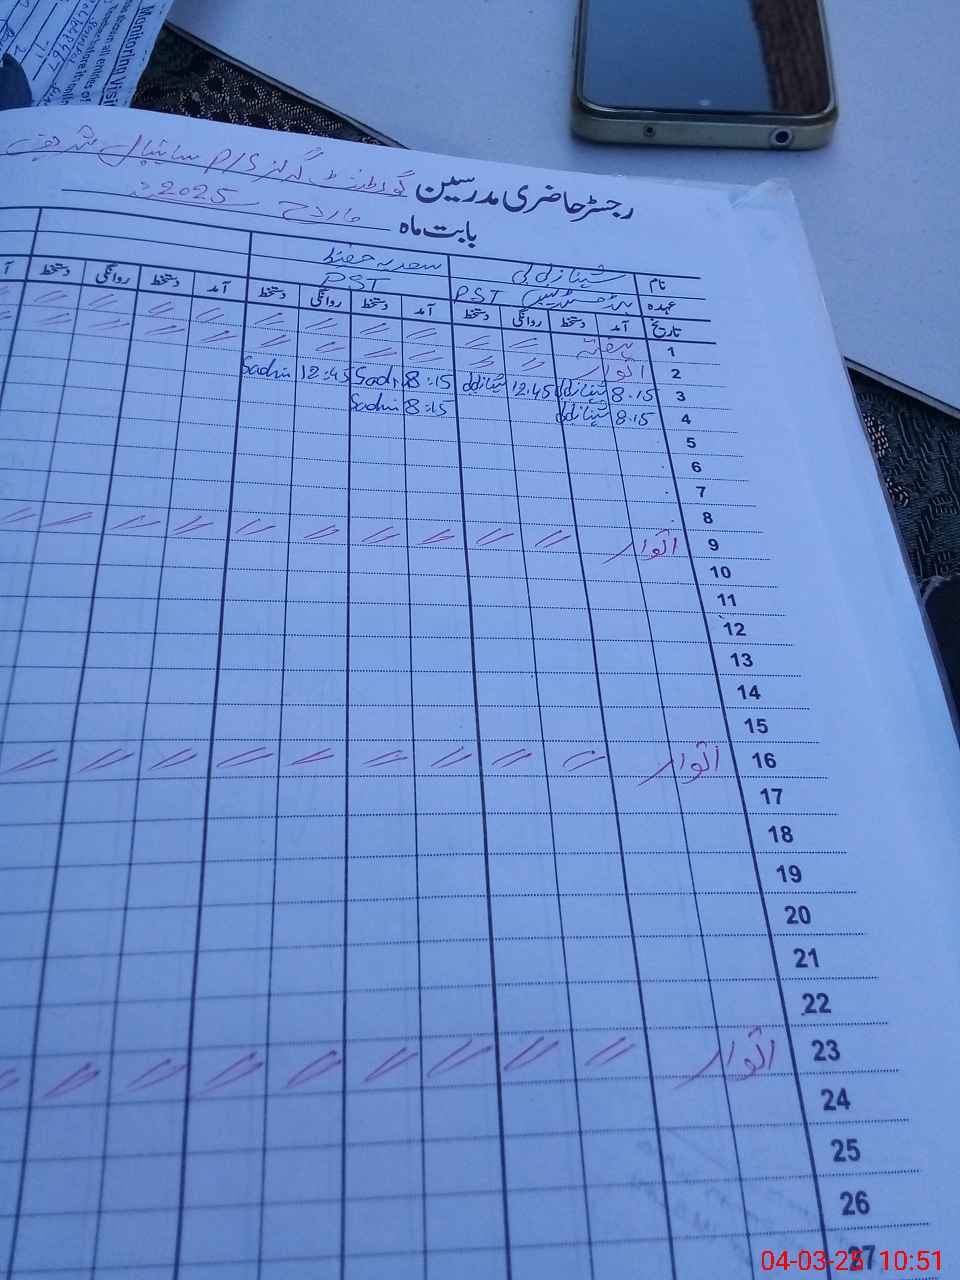 Monitoring Visit
رجسٹر حاضری مدرسین گورنمنٹ گرلز P/S
بابت ماہ مارچ 2025ء
نام شہناز بی بی سعدیہ حفیظ
عہدہ ہیڈ مسٹریس PST PST
تاریخ آمد دستخط روانگی دستخط آمد دستخط روانگی دستخط آمد دستخط روانگی دستخط
1
2 اتوار
3 8.15 12.45 8:15 12:45 Sadia
4 8.15 8:15 Sadia
5
6
7
8
9 اتوار
10
11
12
13
14
15
16 اتوار
17
18
19
20
21
22
23 اتوار
24
25
26
27
04-03-25 10:51